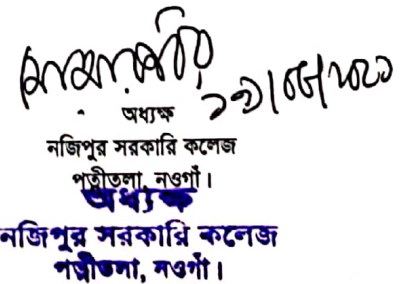 অধ্যক্ষ
নজিপুর সরকারি কলেজ
পত্নীতলা, নওগাঁ।
অধ্যক্ষ
নজিপুর সরকারি কলেজ
পত্নীতলা, নওগাঁ।